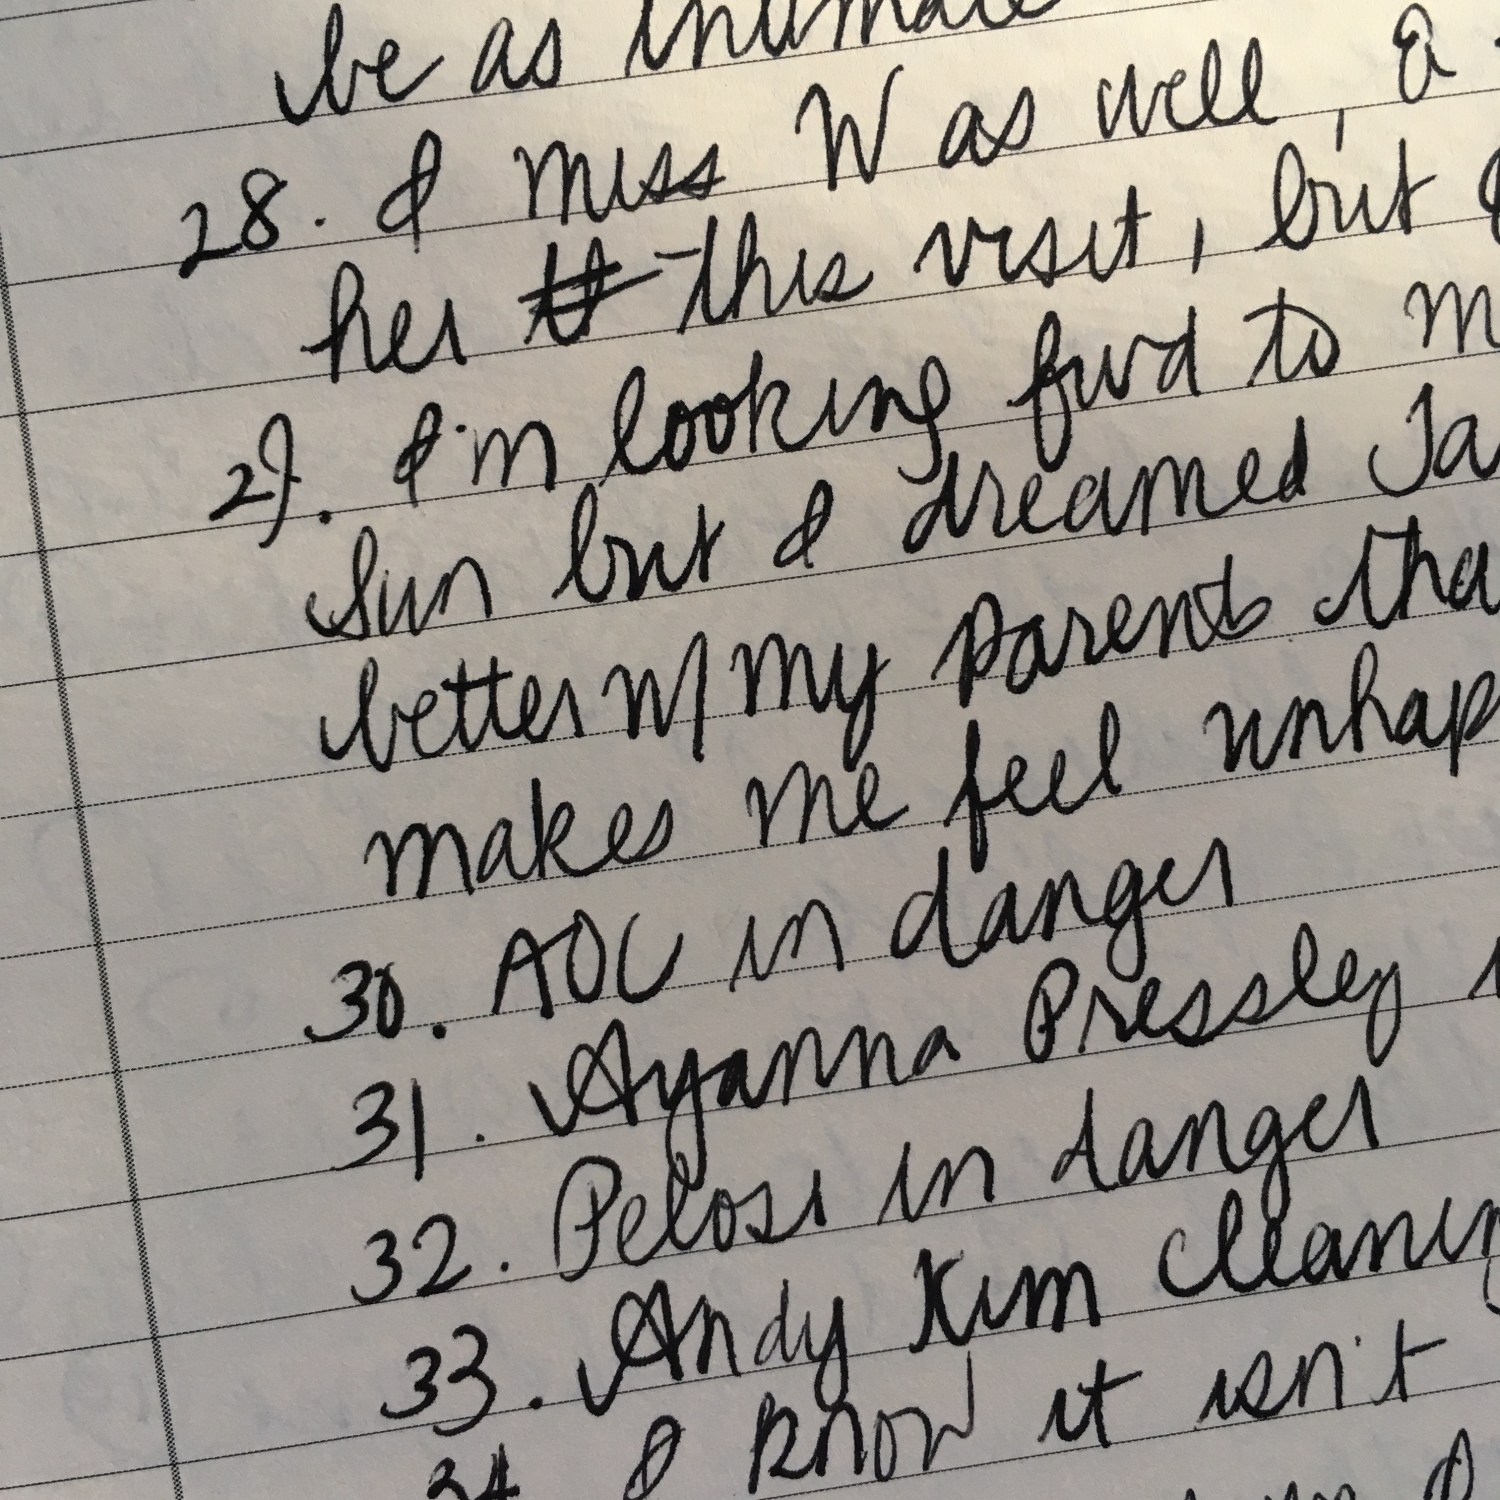 be as intimate
28. I miss W as well, a
her this visit, but
29. I'm looking fwd to m
Sun but I dreamed Ja
better w/ my parents tha
makes me feel unhap
30. AOC in danger
31. Ayanna Pressley
32. Pelosi in danger
33. Andy Kim cleanin
34 I know it isn't